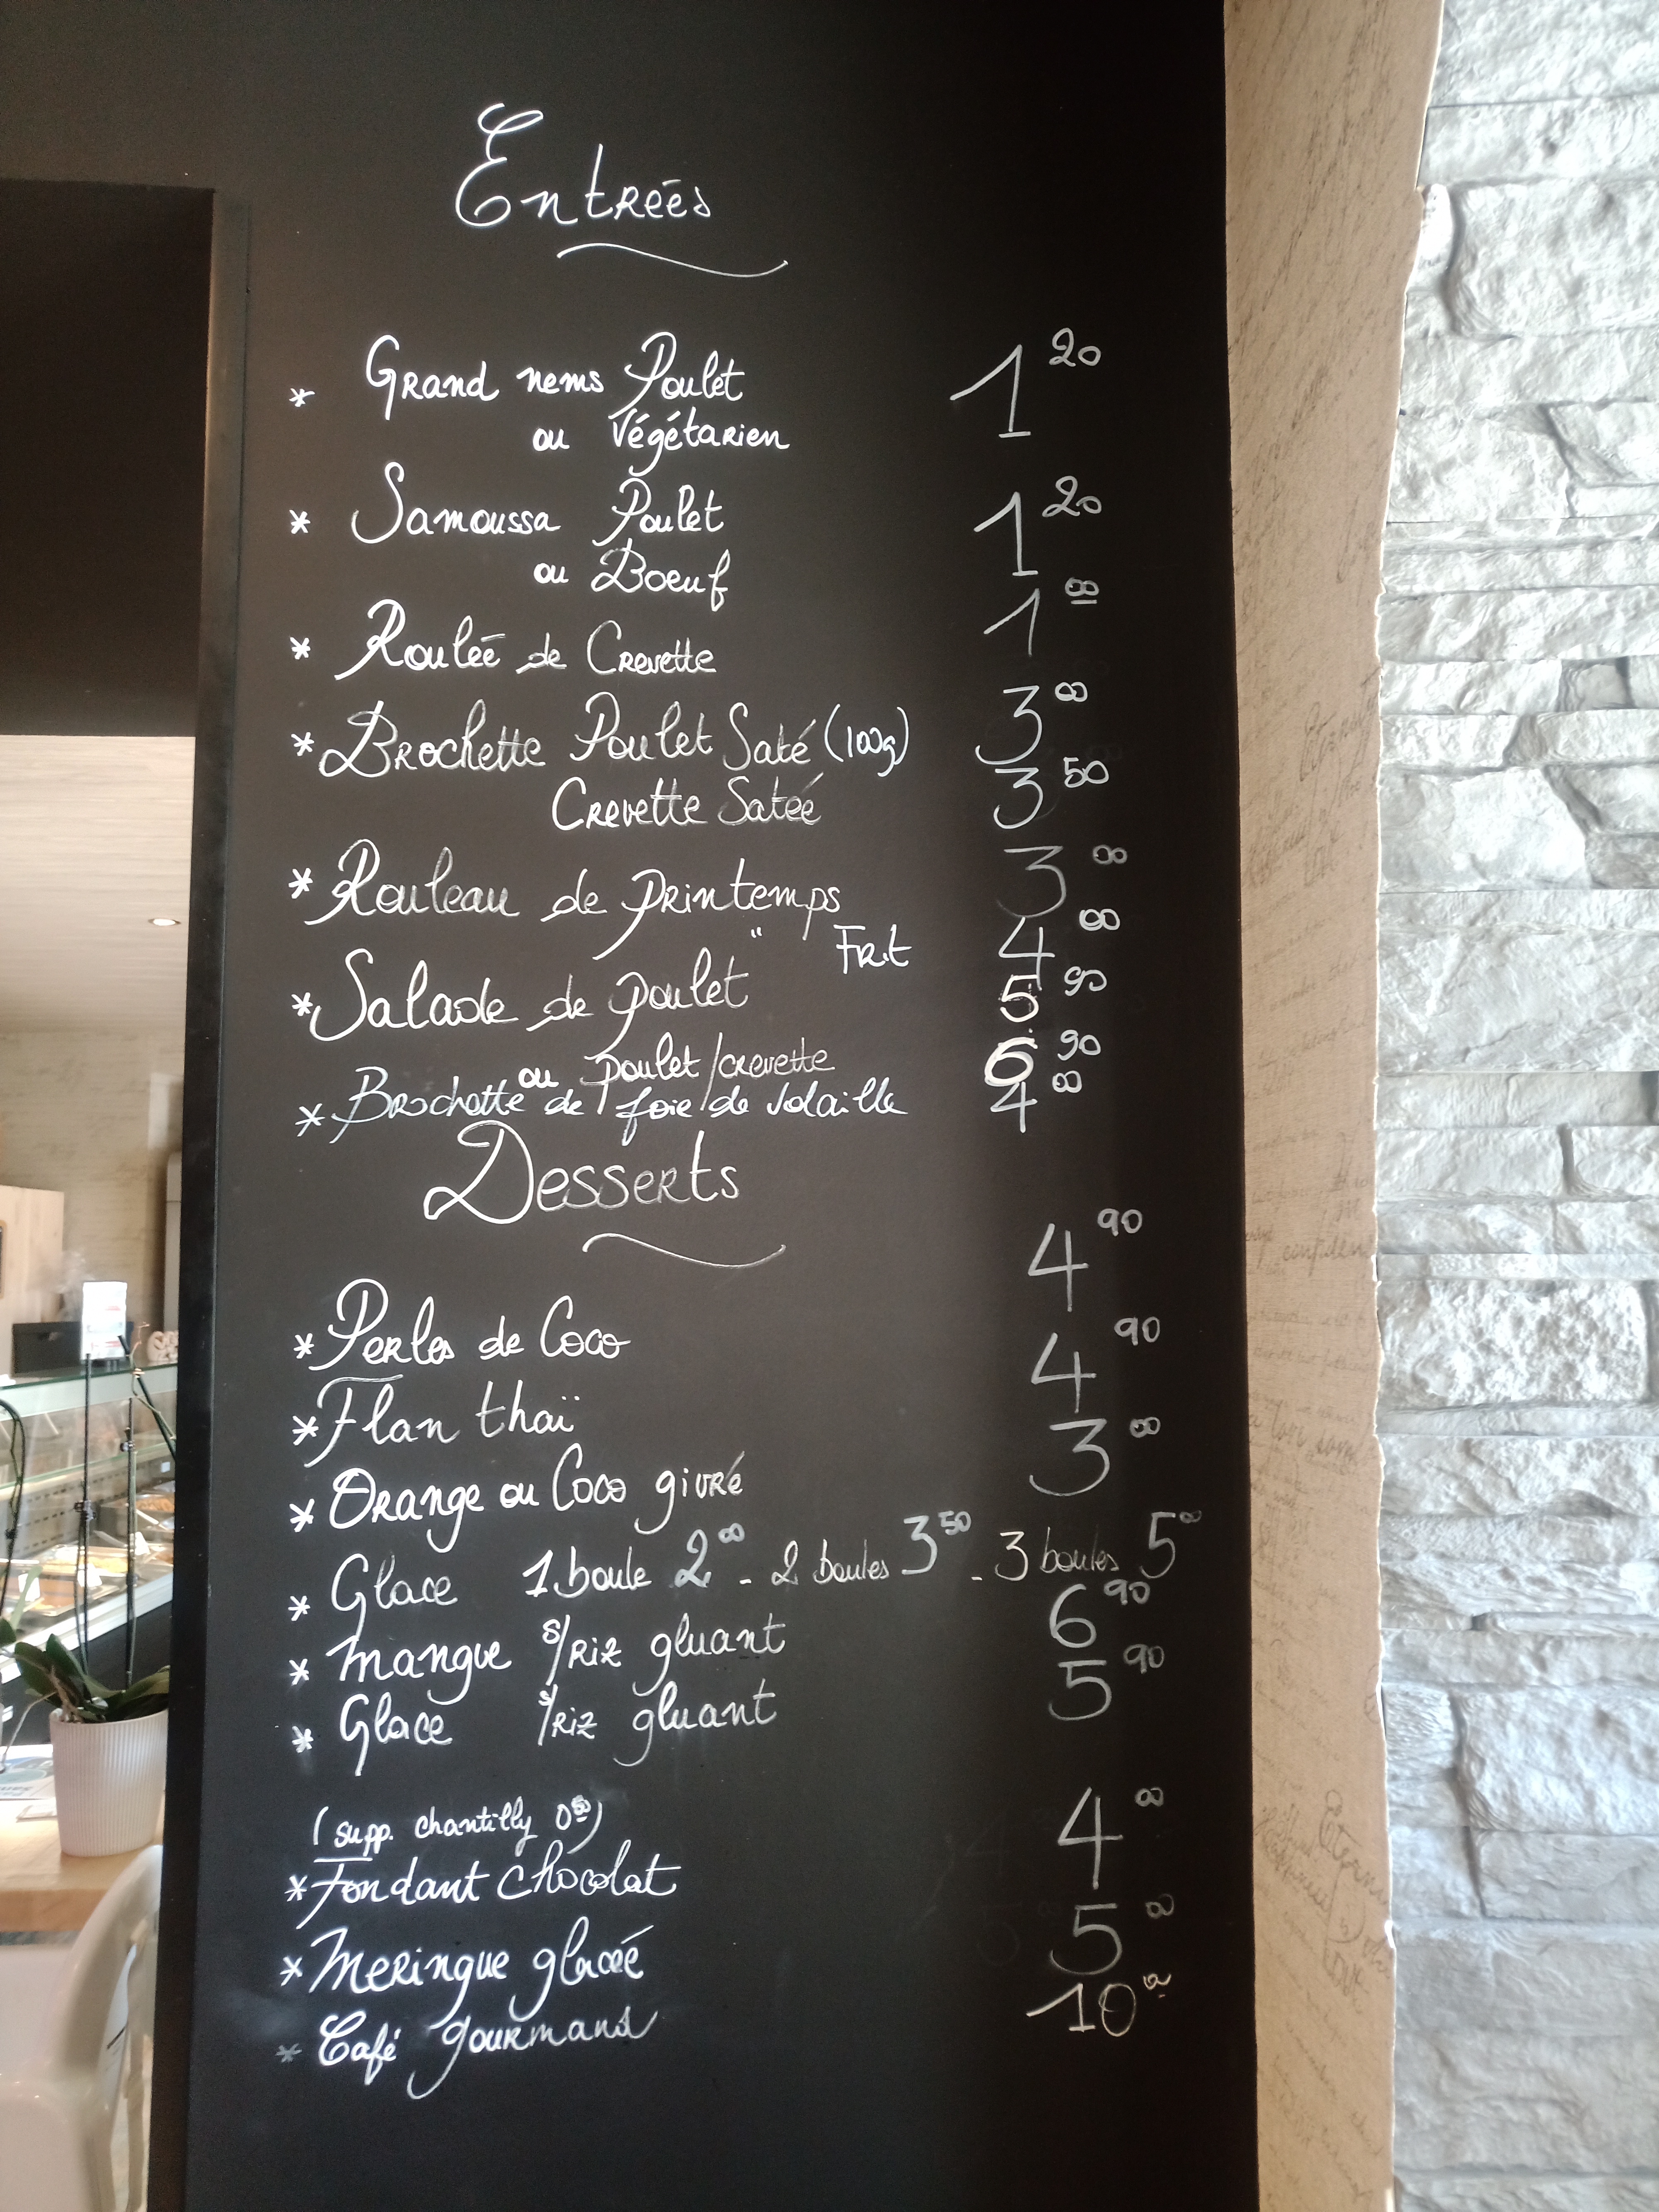 Entrées
* Grand nems Poulet 1 20
ou Végétarien
* Samoussa Poulet 1 20
ou Boeuf
* Roulée de Crevette 1 00
* Brochette Poulet Saté (100g) 3 00
Crevette Satée 3 50
* Rouleau de printemps 3 00
" Frit 4 00
* Salade de poulet 5 90
ou poulet/crevette 6 90
* Brochette de foie de volaille 4 00
Desserts
* Perles de Coco 4 90
* Flan thaï 4 90
* Orange ou Coco givré 3 00
* Glace 1 boule 2 00 - 2 boules 3 50 - 3 boules 5 00
* Mangue s/riz gluant 6 90
* Glace s/riz gluant 5 90
(supp. chantilly 0 50)
* Fondant chocolat 4 00
* Meringue glacée 5 00
* Café gourmand 10 00